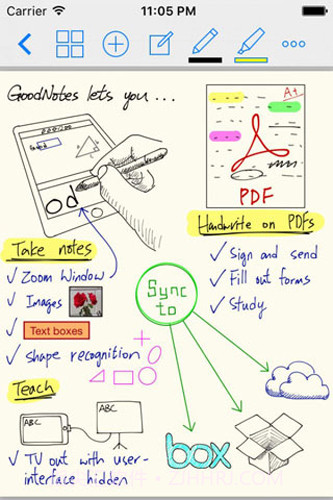 Carrier
11:05 PM
GoodNotes lets you ...
A+
PDF
od
Take notes
✓ Zoom Window
✓ Images
✓ Text boxes
✓ shape recognition
Handwrite on PDFs
✓ Sign and send
✓ Fill out forms
✓ Study
Sync
to
Teach
ABC
ABC
✓ TV out with user-
interface hidden
box